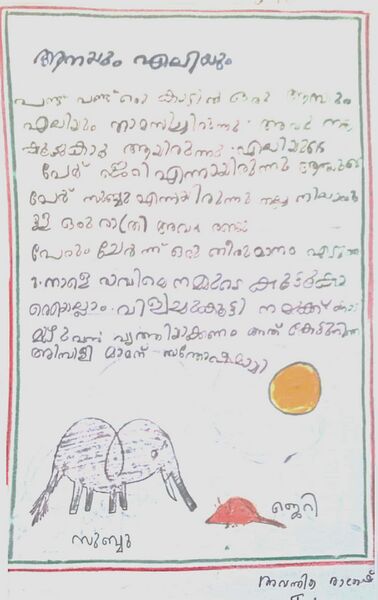 ആനയും എലിയും
പണ്ട് പണ്ട് ഒരു കാട്ടിൽ ഒരു ആനയും
എലിയും താമസിച്ചിരുന്നു. അവർ നല്ല
കൂട്ടുകാർ ആയിരുന്നു. എലിയുടെ
പേര് ജെറി എന്നായിരുന്നു ആനയുടെ
പേര് സുബ്ബു എന്നായിരുന്നു നല്ല നിലാവു
ള്ള ഒരു രാത്രി അവർ രണ്ട്
പേരും ചേർന്ന് ഒരു തീരുമാനം എടുത്തു
നാളെ രാവിലെ നമ്മുടെ കൂട്ടുകാ
രെയെല്ലാം വിളിച്ചുകൂട്ടി നമുക്ക് കാട്
മുഴുവൻ വൃത്തിയാക്കണം അത് കേട്ടപ്പോൾ
അമ്പിളി മാമന് സന്തോഷമായി
ജെറി
സുബ്ബു
അവന്തിക രാജേഷ്